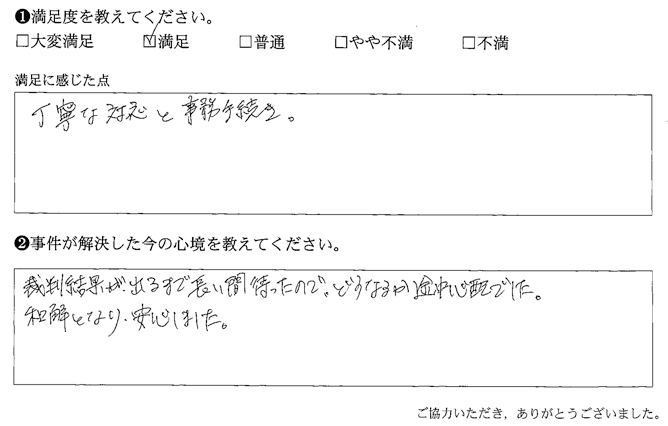 ❶満足度を教えてください。
□大変満足 ☑満足 □普通 □やや不満 □不満
満足に感じた点
丁寧な対応と事務手続き。
❷事件が解決した今の心境を教えてください。
裁判結果が出るまで長い間待ったので、どうなるか途中心配でした。
和解となり、安心しました。
ご協力いただき、ありがとうございました。